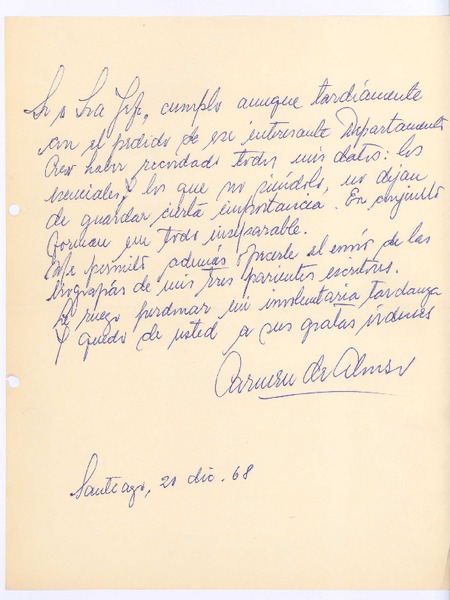 Sr o Sra Jefe, cumplo aunque tardíamente
con el pedido de ese interesante Departamento
Creo haber recordado todos mis datos: los
esenciales y los que no siéndolo, no dejan
de guardar cierta importancia. En conjunto
forman un todo inseparable.
Me permito además ofrecerle el envío de las
biografías de mis tres parientes escritores.
Le ruego perdonar mi involuntaria tardanza
y quedo de usted a sus gratas órdenes
Carmen de Alonso
Santiago, 20 dic. 68